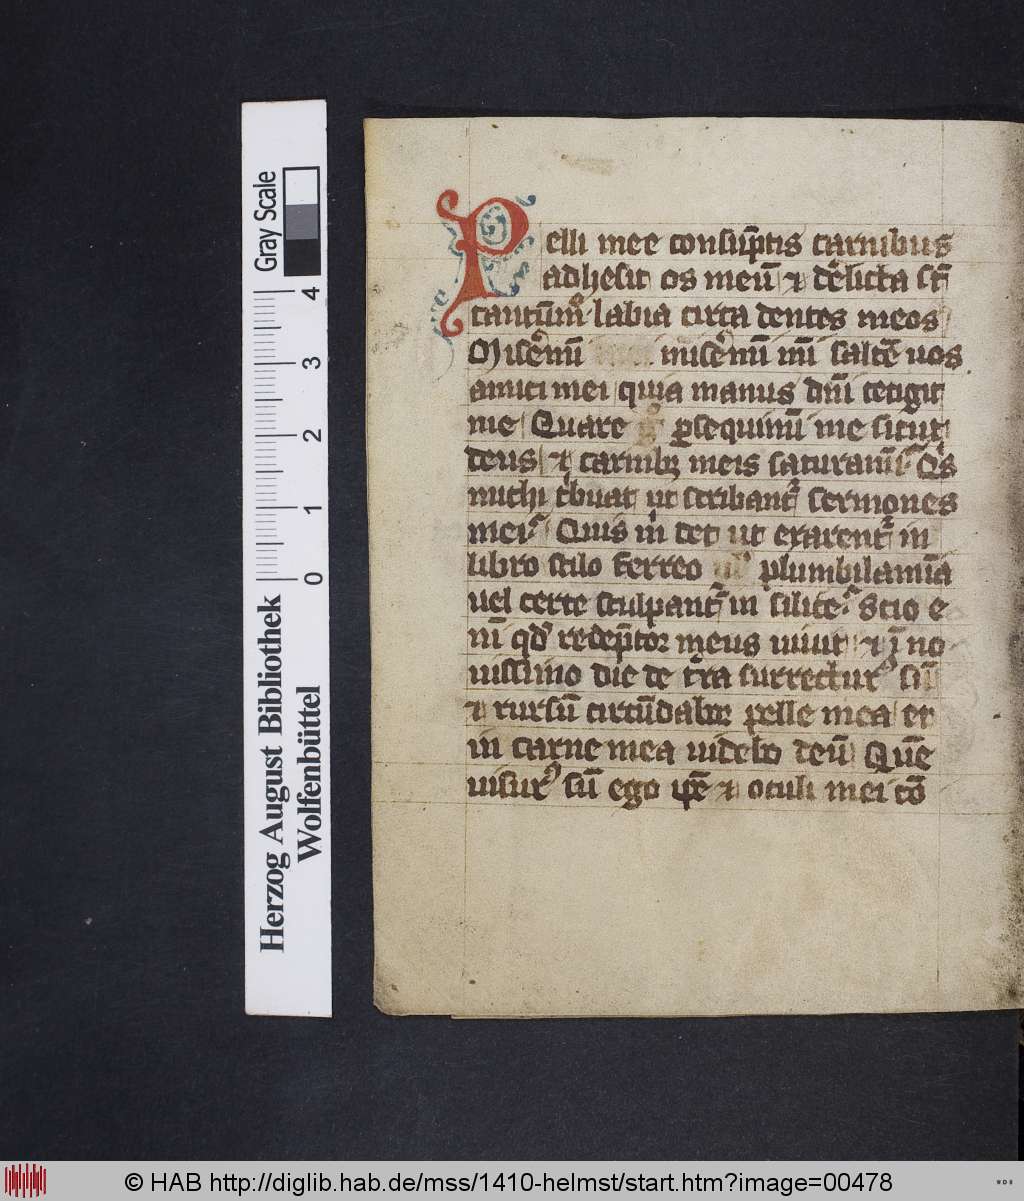 Pelli mee consūptis carnibus
adhesit os meū ⁊ d̾elicta sūt
tantūm̊ labia circa dentes meos
Misēmī misēmī mī saltē uos
amici mei quia manus dn̄i tetigit
me Quare ꝑsequimī me sicut
deus ⁊ carnibꝫ meis saturamī Qͥs
michi tͥbuat ut scribantᷣ sermones
mei Quis m̄ det ut exarentᷣ in
libro stilo ferreo plumbi lamīa
uel certe sculpantᷣ in silice Scio e
nī qd̓ redēptor meus uiuit ⁊ ī no
uissimo die de t̄ra surrecturꝰ sū
⁊ rursū circūdabor pelle mea et
in carne mea uidebo deū Quē
uisurꝰ sū ego ip̄e ⁊ oculi mei cō
Gray Scale
4
3
2
1
0
Herzog August Bibliothek
Wolfenbüttel
© HAB http://diglib.hab.de/mss/1410-helmst/start.htm?image=00478